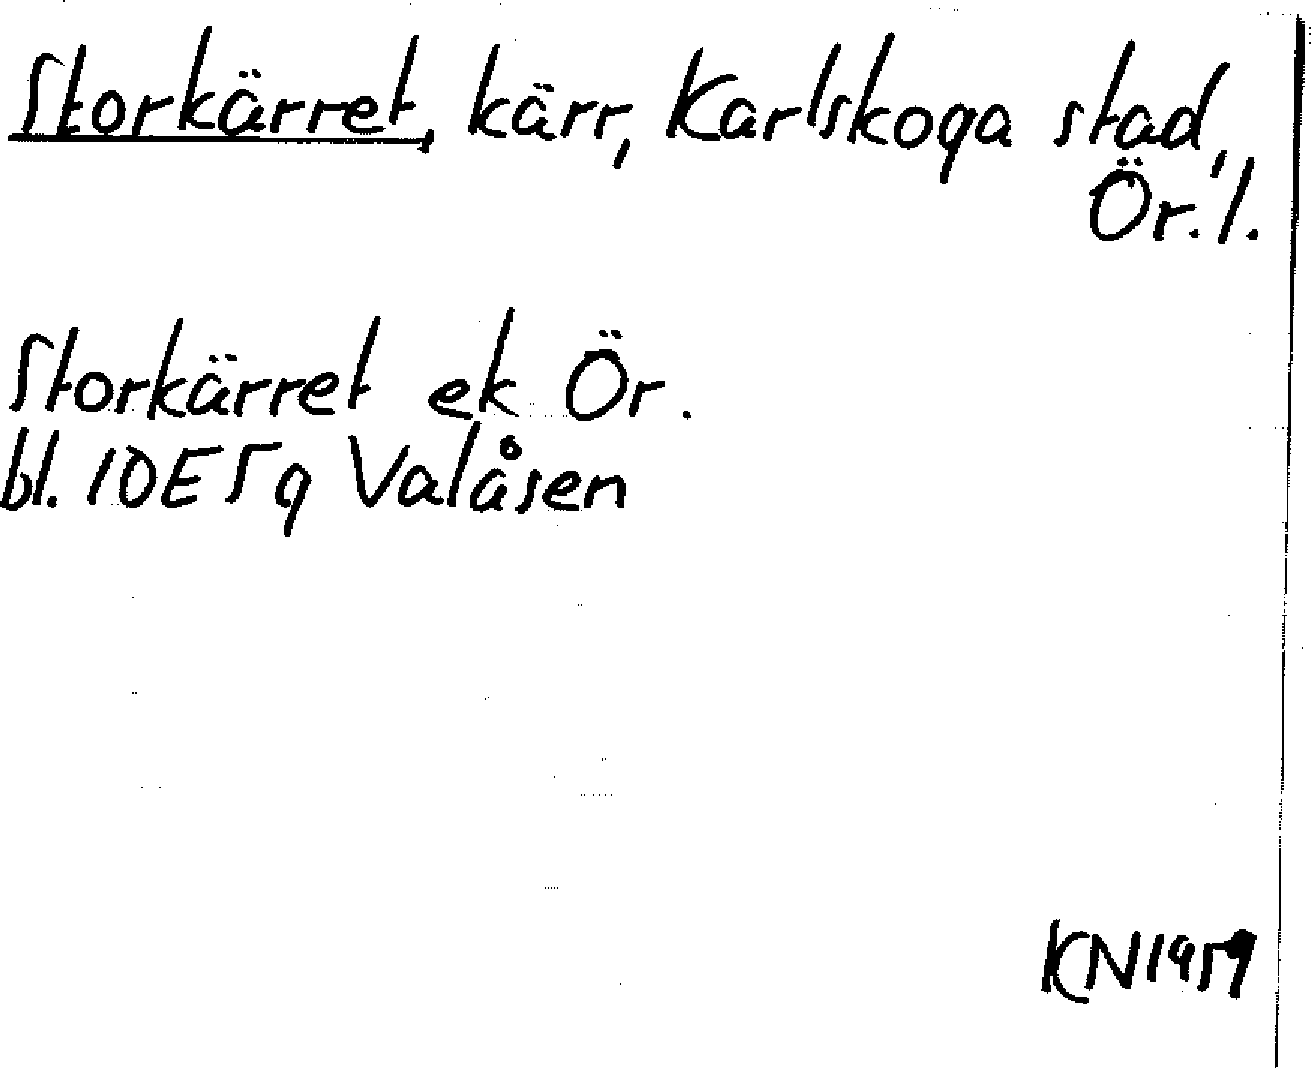 Storkärret, kärr, Karlskoga stad,
Ör. l.
Storkärret ek Ör.
bl. 10E5g Valåsen
KN 1959